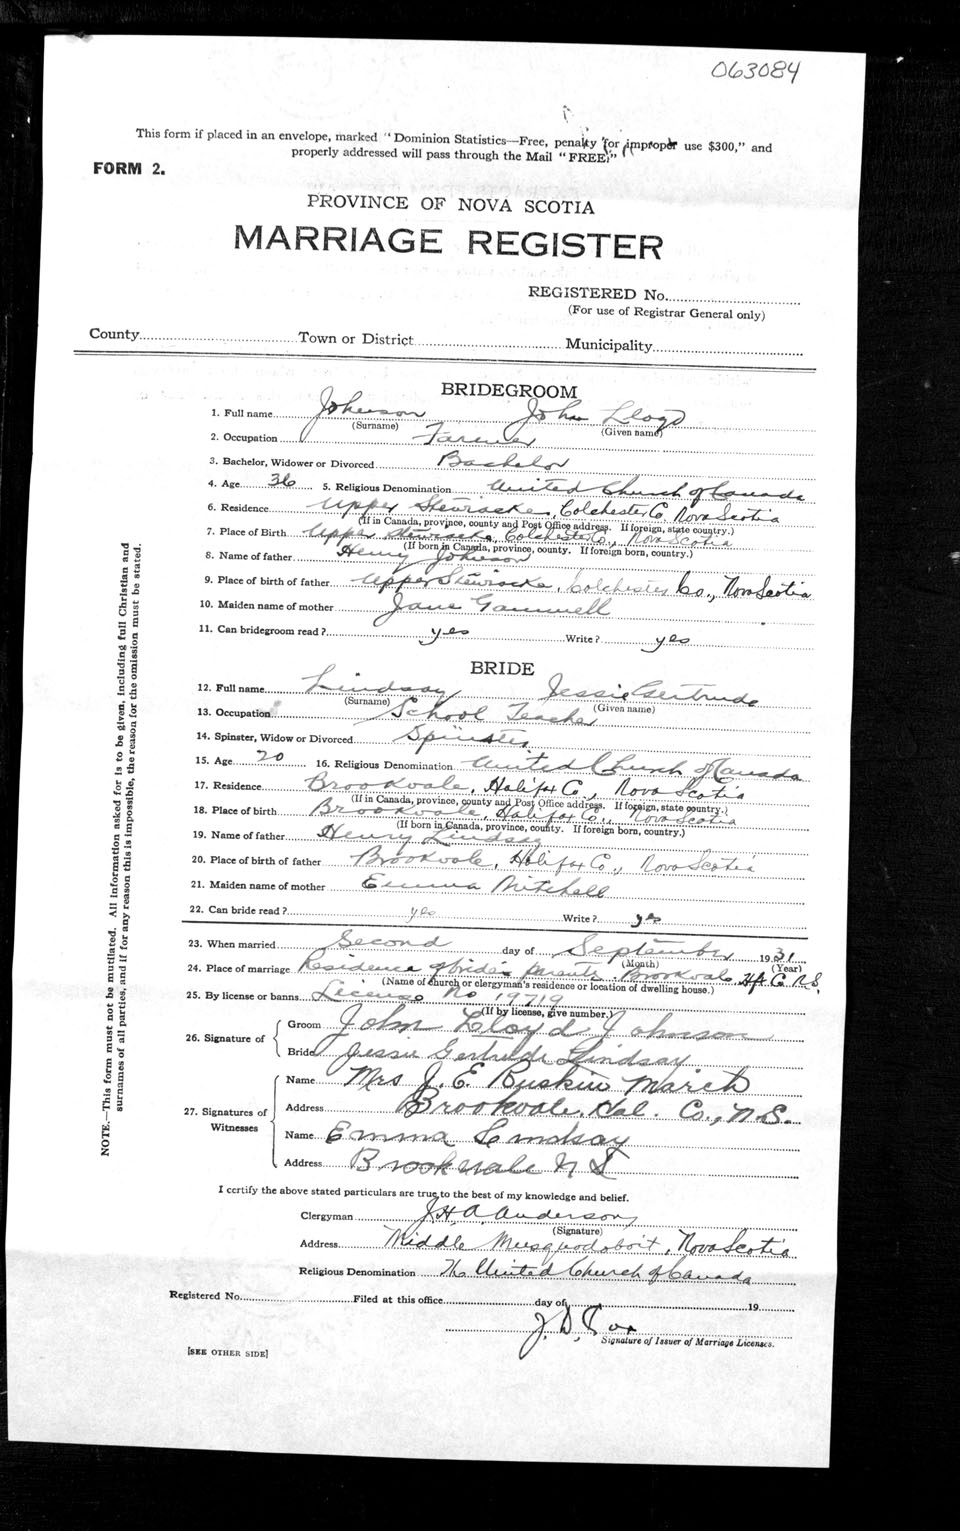 063084
This form if placed in an envelope, marked "Dominion Statistics—Free, penalty for improper use $300," and
properly addressed will pass through the Mail "FREE."
FORM 2.
PROVINCE OF NOVA SCOTIA
MARRIAGE REGISTER
REGISTERED No.
(For use of Registrar General only)
County Town or District Municipality
BRIDEGROOM
1. Full name Johnson John Lloyd
(Surname) (Given name)
2. Occupation Farmer
3. Bachelor, Widower or Divorced Bachelor
4. Age 36 5. Religious Denomination United Church of Canada
6. Residence Upper Stewiacke, Colchester Co, Nova Scotia
(If in Canada, province, county and Post Office address. If foreign, state country.)
7. Place of Birth Upper Stewiacke, Colchester Co., Nova Scotia
(If born in Canada, province, county. If foreign born, country.)
8. Name of father Henry Johnson
9. Place of birth of father Upper Stewiacke, Colchester Co., Nova Scotia
10. Maiden name of mother Jane Gammell
11. Can bridegroom read? yes Write? yes
BRIDE
12. Full name Lindsay Jessie Gertrude
(Surname) (Given name)
13. Occupation School Teacher
14. Spinster, Widow or Divorced Spinster
15. Age 20 16. Religious Denomination United Church of Canada
17. Residence Brookvale, Halifax Co., Nova Scotia
(If in Canada, province, county and Post Office address. If foreign, state country.)
18. Place of birth Brookvale, Halifax Co., Nova Scotia
(If born in Canada, province, county. If foreign born, country.)
19. Name of father Henry Lindsay
20. Place of birth of father Brookvale, Halifax Co., Nova Scotia
21. Maiden name of mother Emma Mitchell
22. Can bride read? yes Write? yes
23. When married Second day of September 1931
(Month) (Year)
24. Place of marriage Residence of brides parents, Brookvale Hfx Co N.S.
(Name of church or clergyman's residence or location of dwelling house.)
25. By license or banns License No 19719
(If by license, give number.)
26. Signature of Groom John Lloyd Johnson
Bride Jessie Gertrude Lindsay
27. Signatures of Witnesses Name Mrs J. E. Ruskin March
Address Brookvale, Hal. Co., N.S.
Name Emma Lindsay
Address Brookvale N S
I certify the above stated particulars are true to the best of my knowledge and belief.
Clergyman J. H. A. Anderson
(Signature)
Address Middle Musquodoboit, Nova Scotia
Religious Denomination The United Church of Canada
Registered No. Filed at this office day of 19
Signature of Issuer of Marriage Licenses.
[SEE OTHER SIDE]
NOTE.—This form must not be mutilated. All information asked for is to be given, including full Christian and
surnames of all parties, and if for any reason this is impossible, the reason for the omission must be stated.